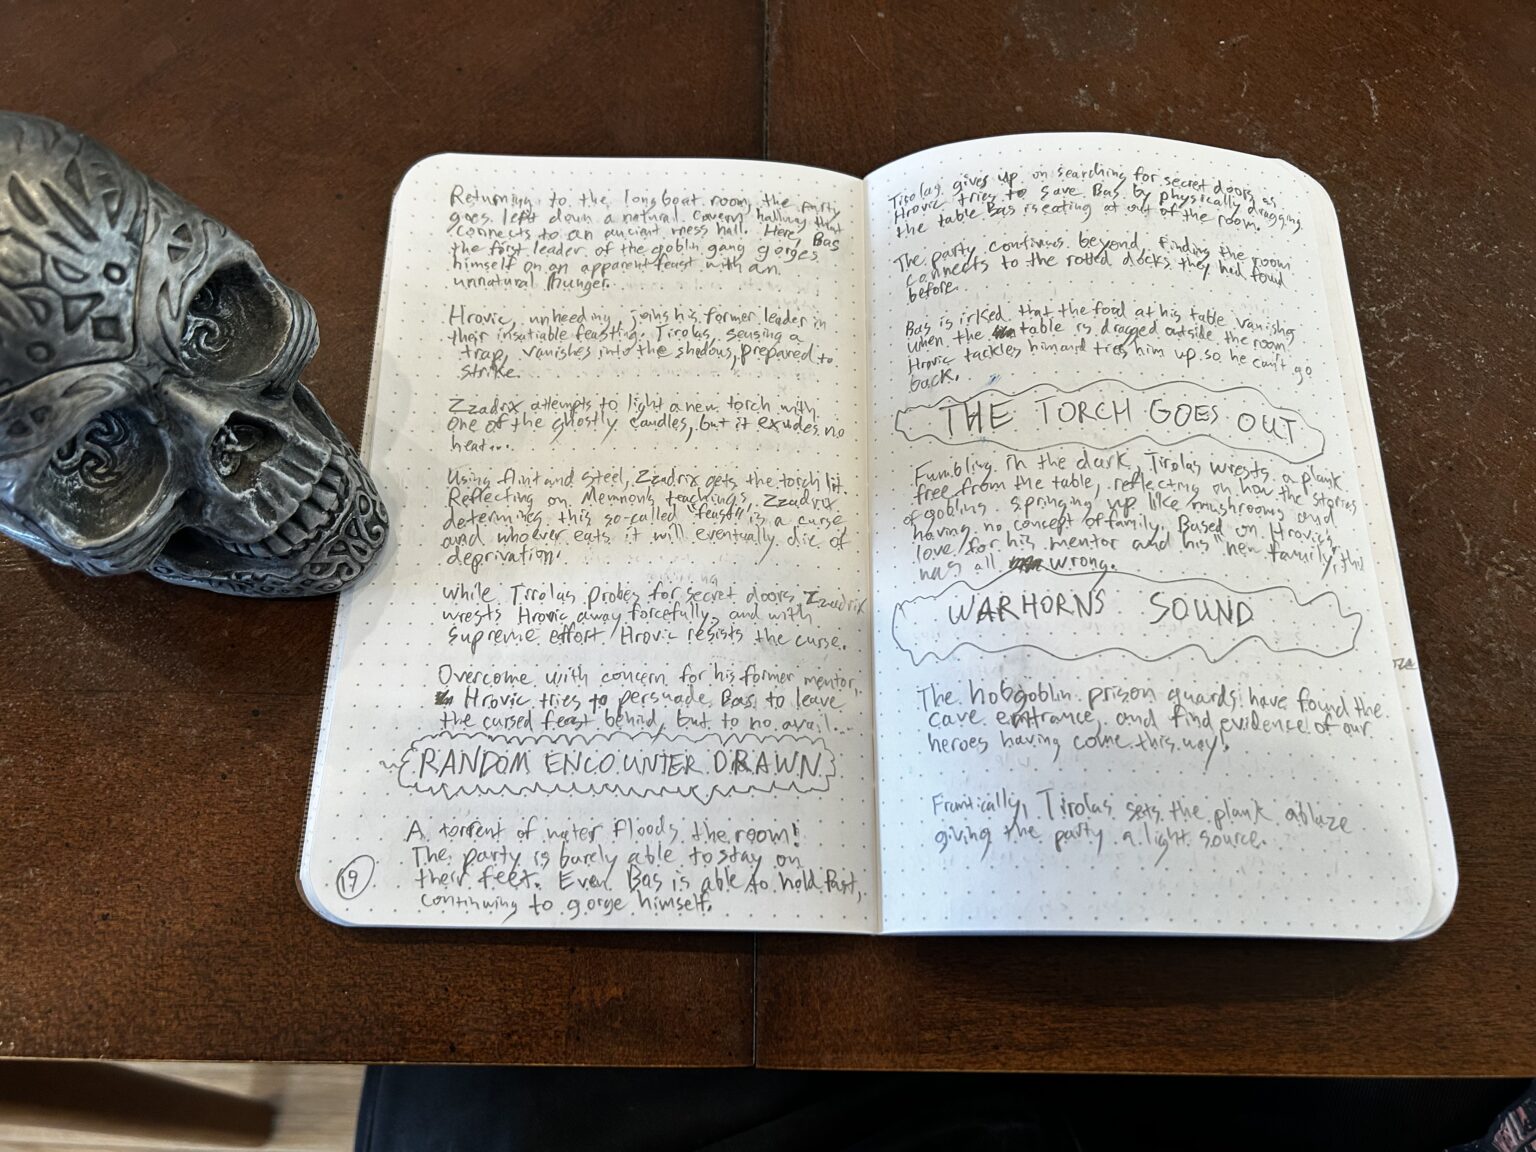 Returning to the longboat room, the party
goes left down a natural cavern hallway that
connects to an ancient mess hall. Here, Bas
the first leader of the goblin gang gorges
himself on an apparent feast with an
unnatural hunger.
Hrovic, unheeding, joins his former leader in
their insatiable feasting. Tirolas, sensing a
trap, vanishes into the shadows, prepared to
strike.
Zzadrix attempts to light a new torch with
one of the ghostly candles, but it exudes no
heat...
Using flint and steel, Zzadrix gets the torch lit.
Reflecting on Memnon's teachings, Zzadrix
determines this so-called "feast" is a curse
and whoever eats it will eventually die of
deprivation.
While Tirolas probes for secret doors, Zzadrix
wrests Hrovic away forcefully, and with
supreme effort Hrovic resists the curse.
Overcome with concern for his former mentor,
Hrovic tries to persuade Bas to leave
the cursed feast behind, but to no avail...
RANDOM ENCOUNTER DRAWN
A torrent of water floods the room!
The party is barely able to stay on
their feet. Even Bas is able to hold fast,
continuing to gorge himself.
19
Tirolas gives up on searching for secret doors as
Hrovic tries to save Bas by physically dragging
the table Bas is eating at out of the room.
The party continues beyond, finding the room
connects to the rotted docks they had foud
before.
Bas is irked that the food at his table vanishes
when the table is dragged outside the room.
Hrovic tackles him and ties him up so he can't go
back.
THE TORCH GOES OUT
Fumbling in the dark, Tirolas wrests a plank
free from the table, reflecting on how the stories
of goblins springing up like mushrooms and
having no concept of family. Based on Hrovic's
love for his mentor and his "new family", this
was all wrong.
WARHORNS SOUND
The hobgoblin prison guards have found the
cave entrance, and find evidence of our
heroes having come this way.
Frantically, Tirolas sets the plank ablaze
giving the party a light source.